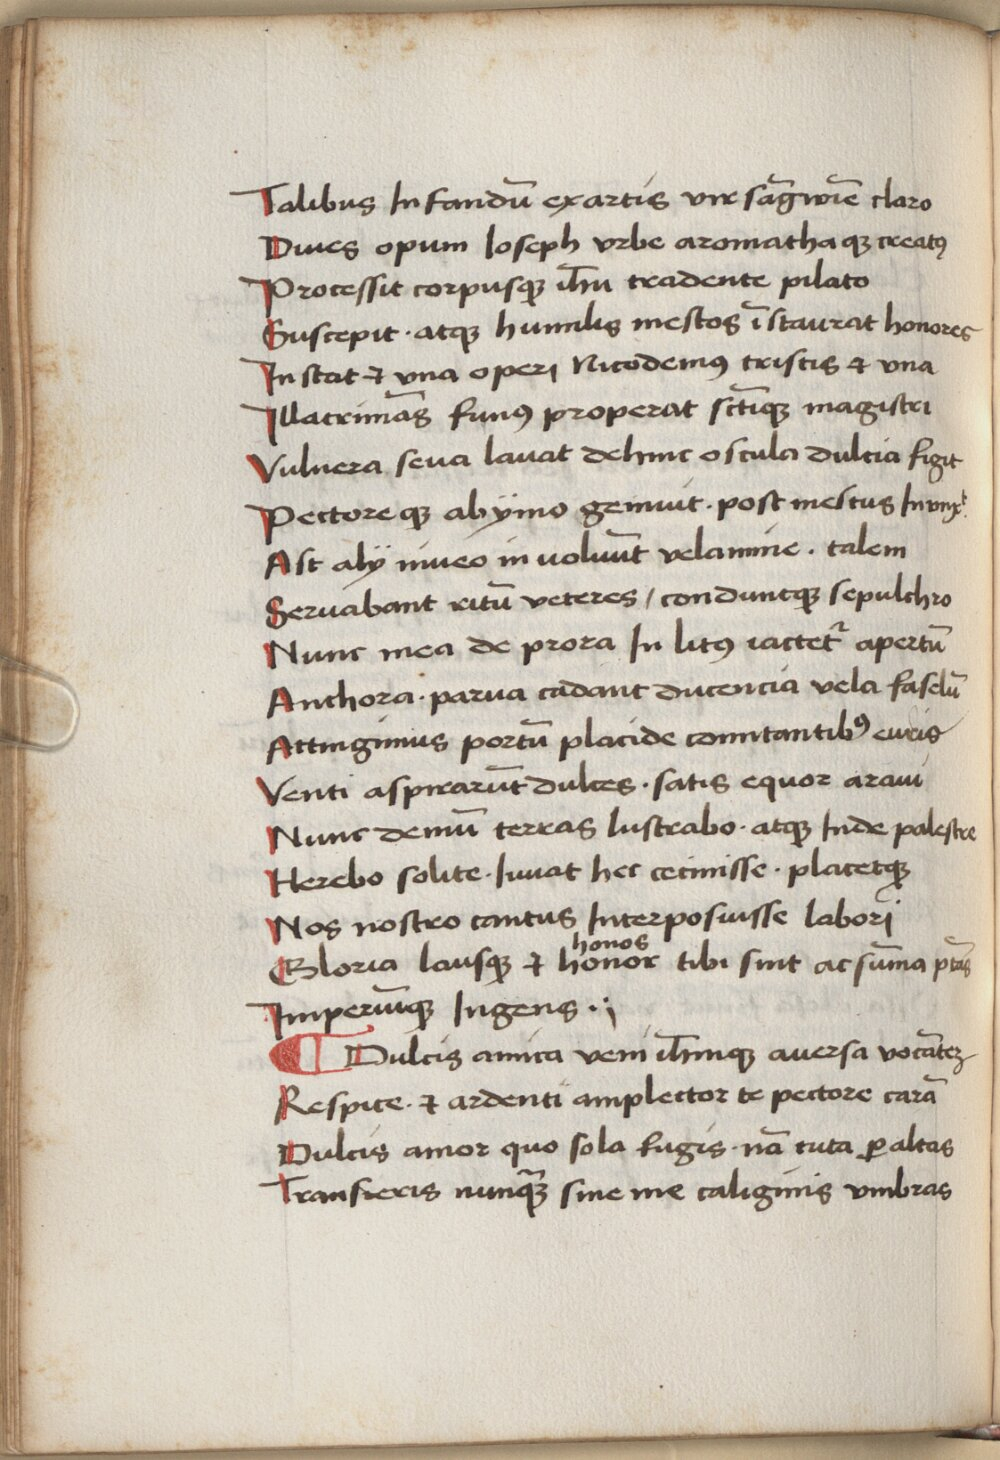 Talibus Infandū exartis vir sāgwiē claro
Diues opum Ioseph vrbe aromatha qꝫ creatꝰ
Processit corpusqꝫ ih̄u tradente pilato
Suscepit · atqꝫ humilis mestos īstaurat honores
Instat ⁊ vna operj Nicodemꝰ tristis ⁊ vna
Illacrimās funꝰ properat sc̄tiqꝫ magistri
Vulnera seua lauat dehinc oscula dulcia figit
Pectore qꝫ abÿmo gemuit · post mestus Invnxᵗ
Ast alÿ niueo in voluūt velamine · talem
Seruabant ritū veteres / conduntqꝫ sepulchro
Nunc mea de prora In litꝰ iactetᷣ apertū
Anchora · parua cadant ducencia vela faselū
Attingimus portū placide comitantibꝰ euris
Venti aspirarūt dulces · satis equor araui
Nunc demū terras lustrabo · atqꝫ Inde palestre
Herebo solite · Iuuat hec cecinisse · placetqꝫ
Nos nostro cantus Interposuisse laborj
honos
Gloria lausqꝫ ⁊ honor tibi sint ac sūma p̄tās
Imperiūqꝫ Ingens ·:
Dulcis amica veni ih̄mqꝫ auersa vocāteꝫ
Respice · ⁊ ardenti amplector te pectore carā
Dulcis amor quo sola fugis · nā tuta ꝑ altas
Transieris nunqꝫ̄ sine me caliginis vmbras